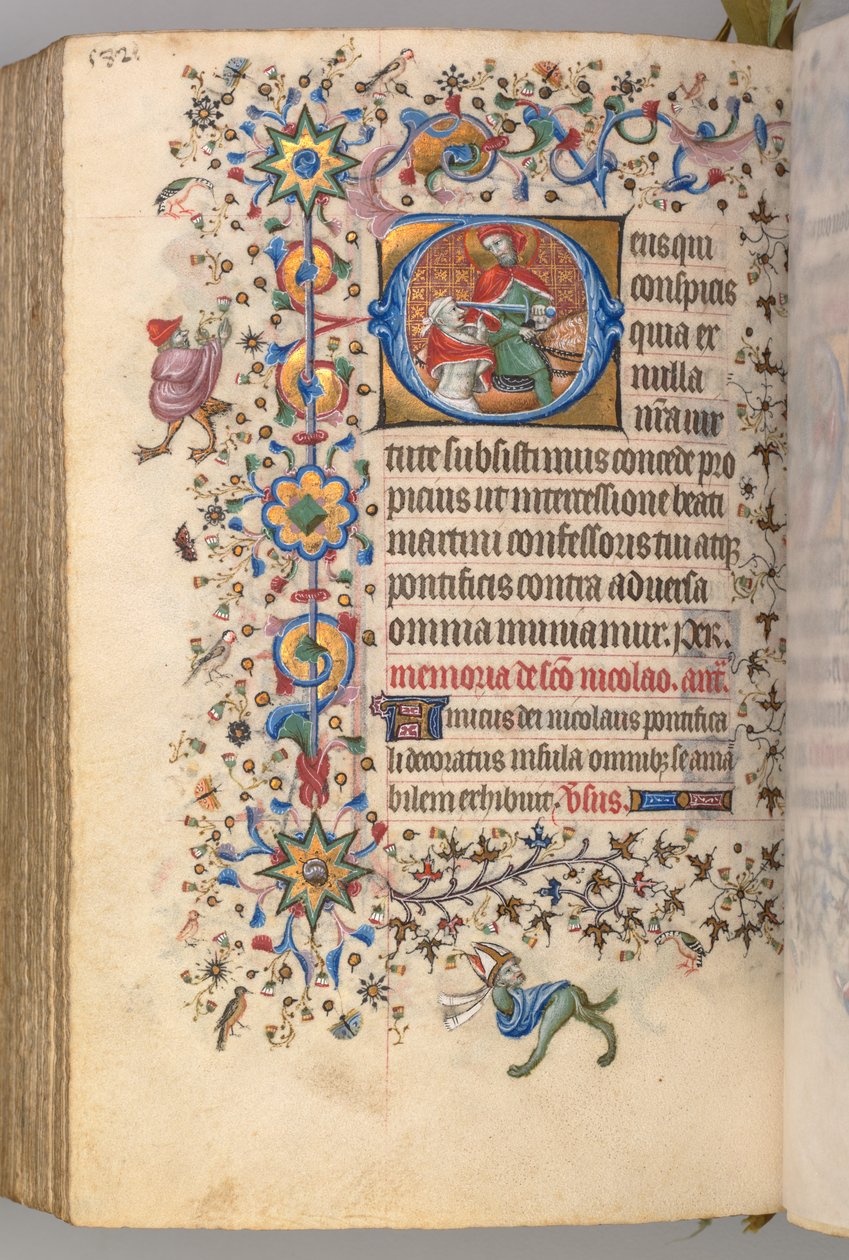 582
Deus qui
conspicis
quia ex
nulla
nr̄a uir
tute subsistimus concede pro
picius ut intercessione beati
martini confessoris tui atqꝫ
pontificis contra aduersa
omnia muniamur. Per.
memoria de sc̄o nicolao. ant̄.
Amicus dei nicolaus pontifica
li decoratus insula omnibꝫ se ama
bilem exhibuit. v̄sus.